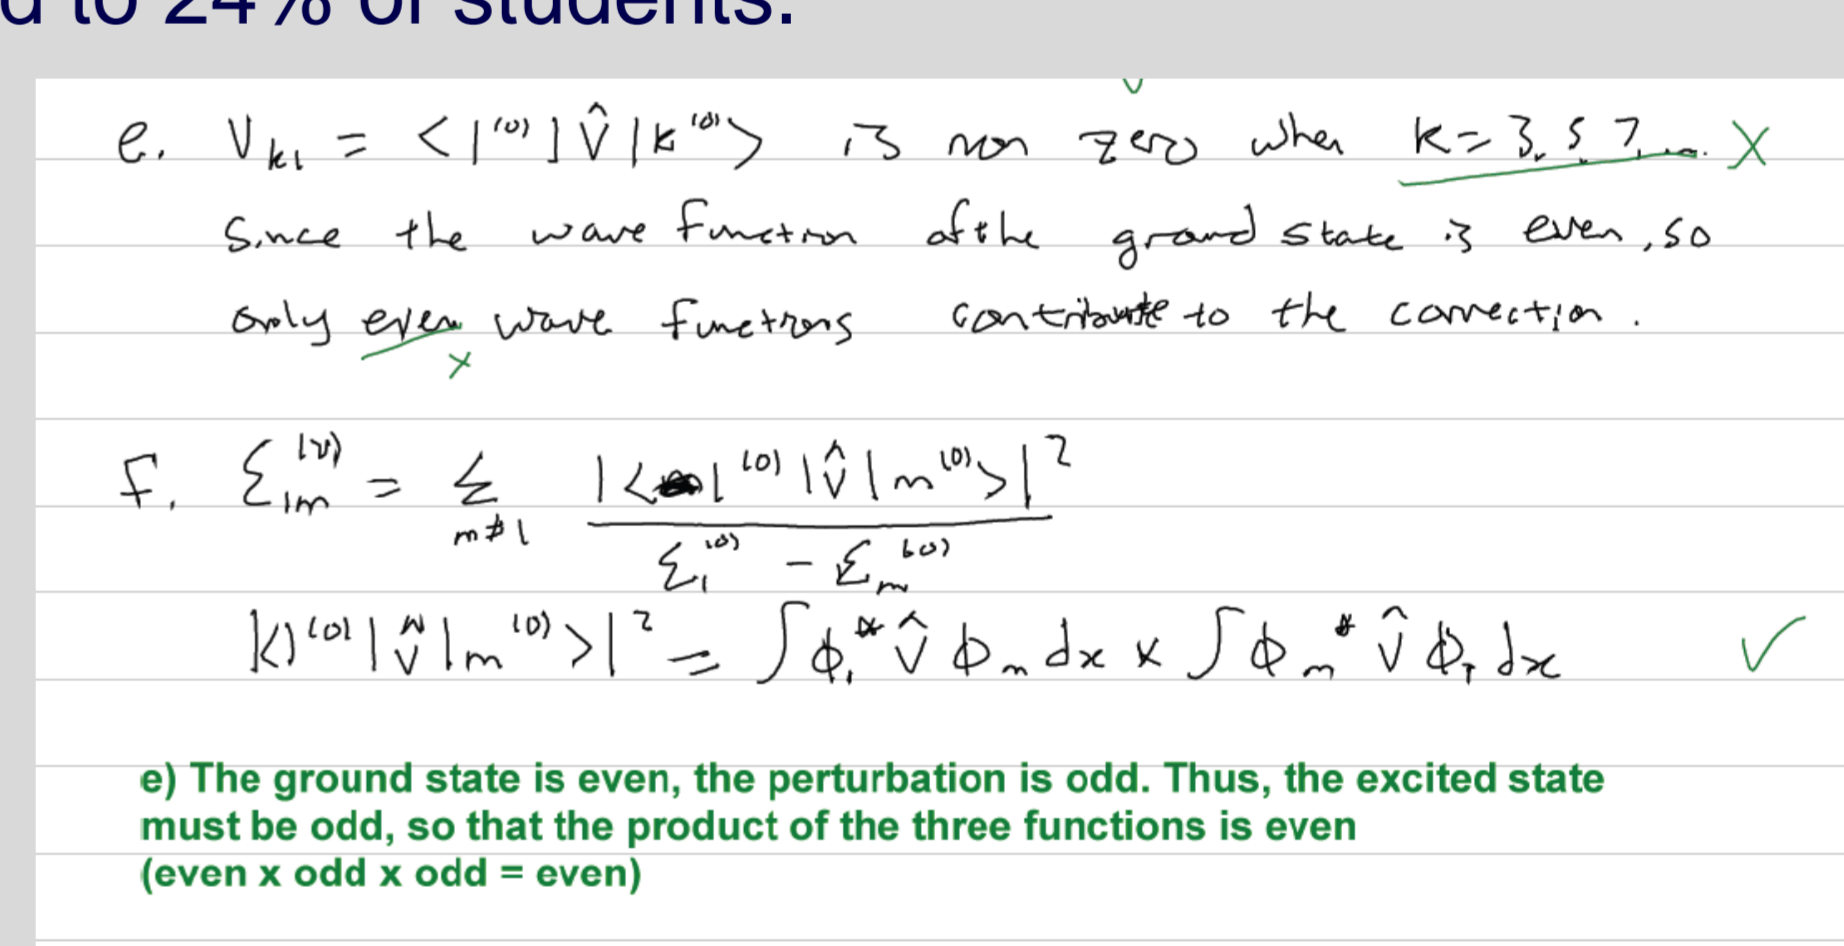 d to 24% of students.
e. V_{k1} = <1^{(0)}|V̂|k^{(0)}> is non zero when k=3, 5, 7, ... X
Since the wave function of the ground state is even, so
only even wave functions contribute to the correction.
x
f. Σ_{1m}^{(2)} = Σ_{m≠1} |<1^{(0)}|V̂|m^{(0)}>|^2 / (Σ_1^{(0)} - Σ_m^{(0)})
|<1^{(0)}|V̂|m^{(0)}>|^2 = ∫ϕ_1^* V̂ ϕ_m dx x ∫ϕ_m^* V̂ ϕ_1 dx ✓
e) The ground state is even, the perturbation is odd. Thus, the excited state
must be odd, so that the product of the three functions is even
(even x odd x odd = even)